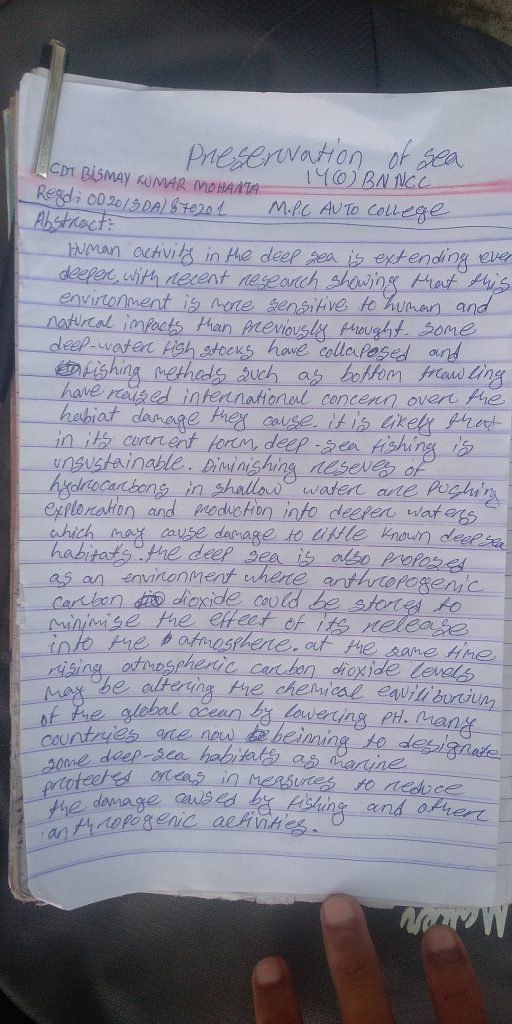 Preservation of sea
14(O) BN NCC
CDT BISMAY KUMAR MOHANTA
Regd: OD20/SDA/870201 M.P.C AUTO College
Abstract:
Human activity in the deep sea is extending ever
deeper, with recent research showing that this
environment is more sensitive to human and
natural impacts than previously thought. some
deep-water fish stocks have collapsed and
fishing methods such as bottom trawling
have raised international concern over the
habiat damage they cause. it is likely that
in its current form, deep-sea fishing is
unsustainable. Diminishing reseves of
hydrocarbons in shallow water are pushing
exploration and production into deeper waters
which may cause damage to little known deep sea
habitats. the deep sea is also proposed
as an environment where anthropogenic
carbon dioxide could be stored to
minimise the effect of its release
into the atmosphere. at the same time
rising atmospheric carbon dioxide levels
may be altering the chemical equiliburium
of the global ocean by lowering PH. Many
countries are now beinning to designate
some deep-sea habitats as marine
protected areas in measures to reduce
the damage caused by fishing and other
anthropogenic activities.